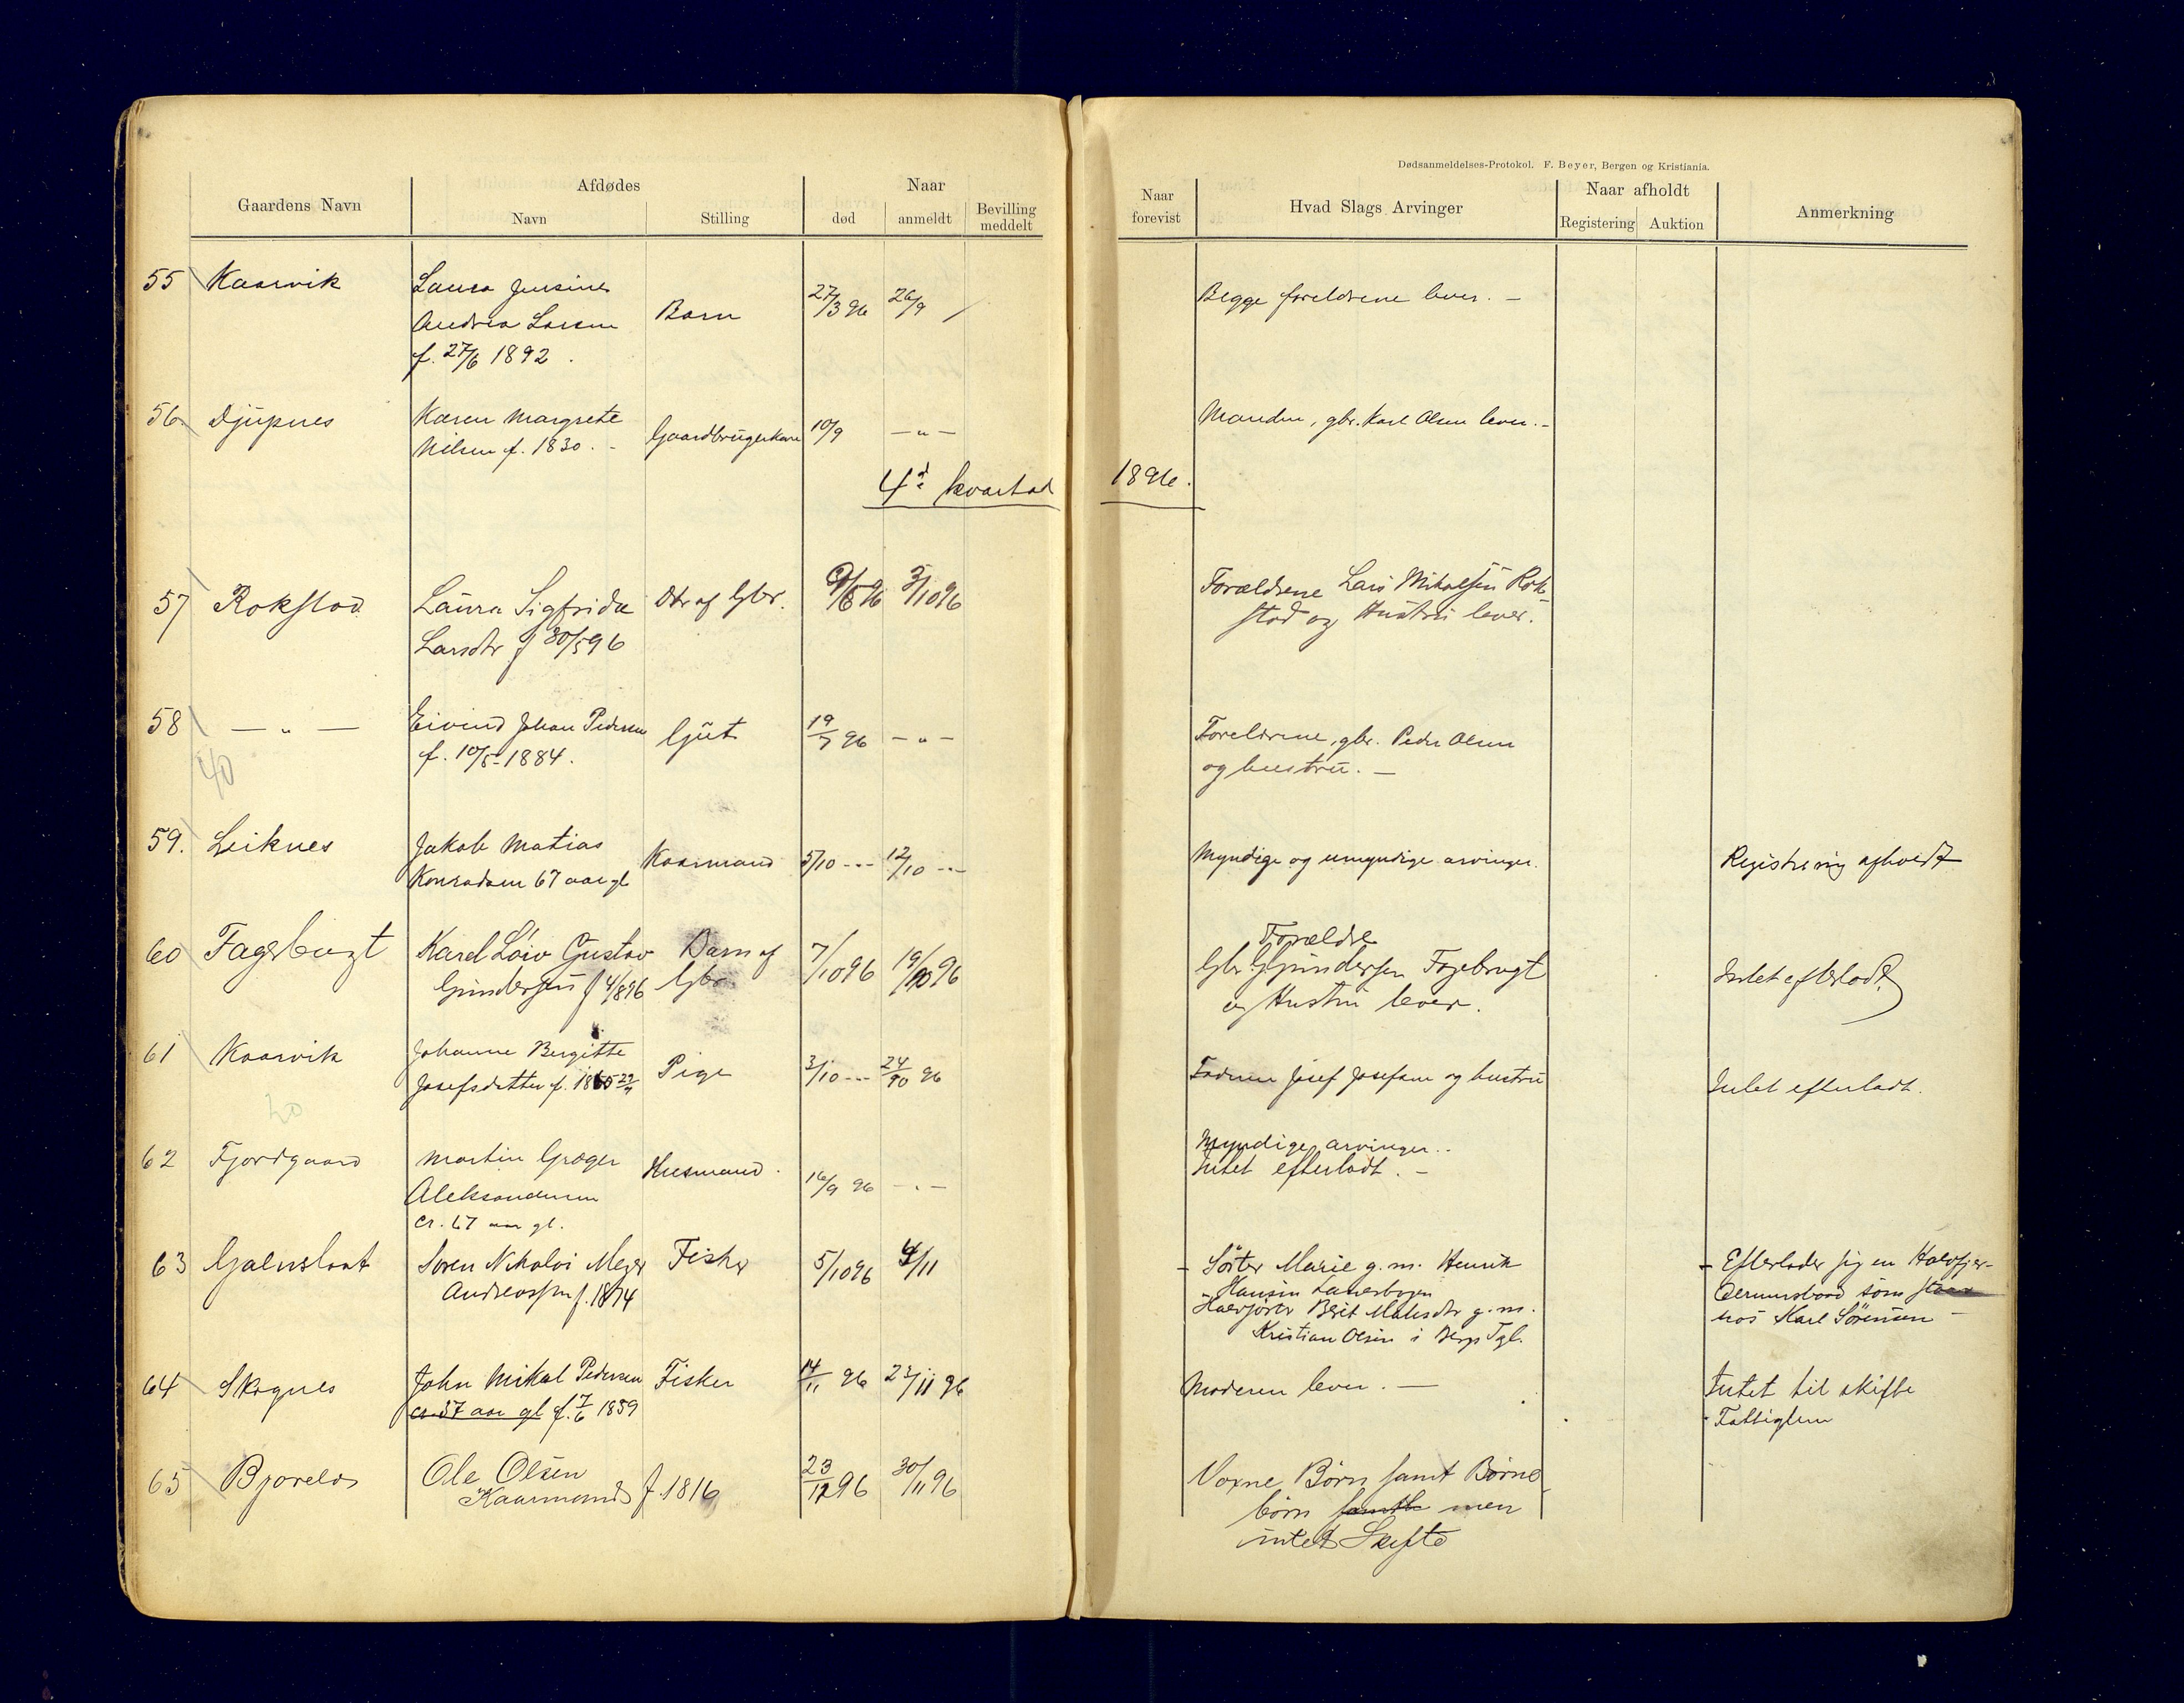 Dødsanmeldelses-Protokol. F. Beyer, Bergen og Kristiania.
Gaardens Navn
Afdødes
Navn
Stilling
Naar
død
anmeldt
Bevilling
meddelt
Naar
forevist
Hvad Slags Arvinger
Naar afholdt
Registering
Auktion
Anmerkning
55 Kaarvik
Laura Jensine
Andrea Larsen
f. 27/6 1892.
Barn
27/3 96
26/9
Begge foreldrene lever. —
56. Djupnes
Karen Margrete
Nilsen f. 1830. -
Gaardbrugerkone
10/9
— „ —
Manden, gbr. Karl Olsen lever. -
4de kvartal
1896.
57 Rokstad
Laura Sigfrida
Larsdtr f 30/5 96
Dtr af Gbr.
9/6 96
3/10 96
Forældrene Lars Mikalsen Rok-
stad og Hustru lever.
58 — „ —
40
Eivind Johan Pedersen
f. 10/5-1884.
Gut
19/7 96
— „ —
Foreldrene, gbr. Peder Olsen
og hustru. —
59. Leiknes
Jakob Matias
Konradsen 67 aar gl
Kaarmand
5/10 ---
12/10 ---
Myndige og umyndige arvinger.
Registrering afholdt
60 Fagerbugt
Karel Löiv Gustav
Gundersen f 4/8 96
Barn af
Gbr.
7/10 96
19/10 96
Forældre
Gbr. G Gundersen Fagebrugt
og Hustru lever.
Intet efterladt.
61 Kaarvik
20
Johanne Bergitte
Josefsdatter f. 1865
Pige
3/10 ---
24/10 96
Faderen Josef Josefsen og hustru
Intet efterladt.
62 Fjordgaard
Martin Grøger
Aleksandersen
cr. 67 aar gl.
Husmand.
16/9 96
— „ —
Myndige arvinger..
Intet efterladt. —
63 Galnslaat
Søren Nikolai Meyer
Andreassen f. 1874
Fisker
5/10 96
4/11
- Söster Marie g. m. Henrik
Hansen Laukebogen
- Halvsöster Berit Matisdtr g. m.
Kristian Olsen i Bergs Tgl.
- Efterlader sig en Halvfjer-
demersbaad som staar
hos Karl Sörensen —
64 Skognes
John Mikal Pedersen
cr. 37 aar gl f. 7/6 1859
Fisker
14/11 96
23/11 96
Moderen lever. —
Intet til skifte
Fattiglem
65 Bjorelv
Ole Olsen
Kaarmand f. 1816
23/12 96
30/11 96
Voxne Börn samt Börne-
börn samtl. men
intet Skifte